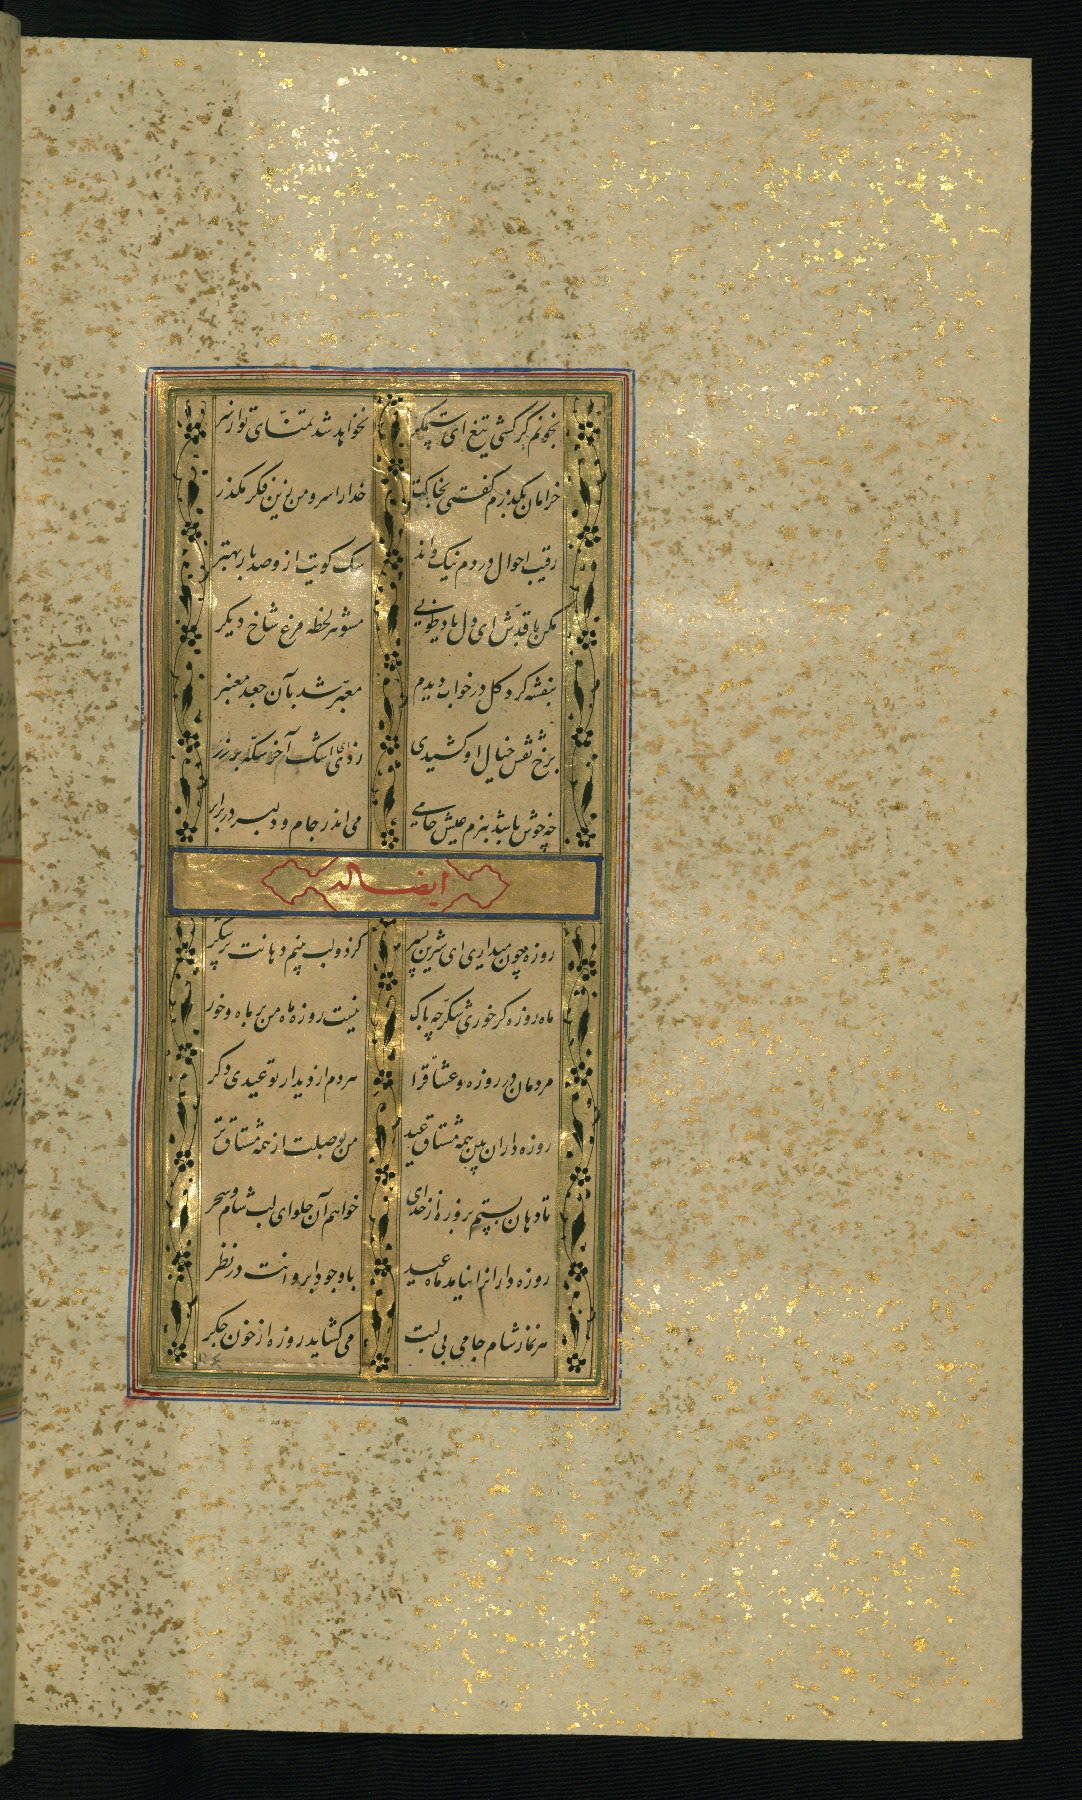 بخونم گر کشی تیغ ای ستمگر نخواهد شد تمنای تو از سر
خرامان بگذرم گفتی بخاکت خدا را سرو من زین فکر مگذر
رقیب احوال دردم نیک داند سگ کویت ازو صد بار بهتر
مکن با قدش ای دل یاد طوبی مشو هر لحظه مرغ شاخ دیگر
بنفشه گرد گل در خواب دیدم معبر شد بآن جعد معنبر
برخ نقش خیال او کشیدی زدی ای اشک آخر سکه بر زر
چه خوش باشد ببزم عیش جامی می اندر جام و دلبر در برابر
ایضا له
روزه چون میداری ای شیرین پسر کز دو لب بینم دهانت پر شکر
ماه روزه گر خوری شکر چه باک نیست روزه ماه من بر ماه و خور
مردمان در روزه و عشاق را هر دم از دیدار تو عیدی دگر
روزه داران بین همه مشتاق عید من بوصلت از همه مشتاق تر
تا دهان بستیم بروزه از خدای خواهم آن حلوای لب شام و سحر
روزه دارانرا نیاید ماه عید با وجود ابروانت در نظر
هر نماز شام جامی بی لبت می گشاید روزه از خون جگر